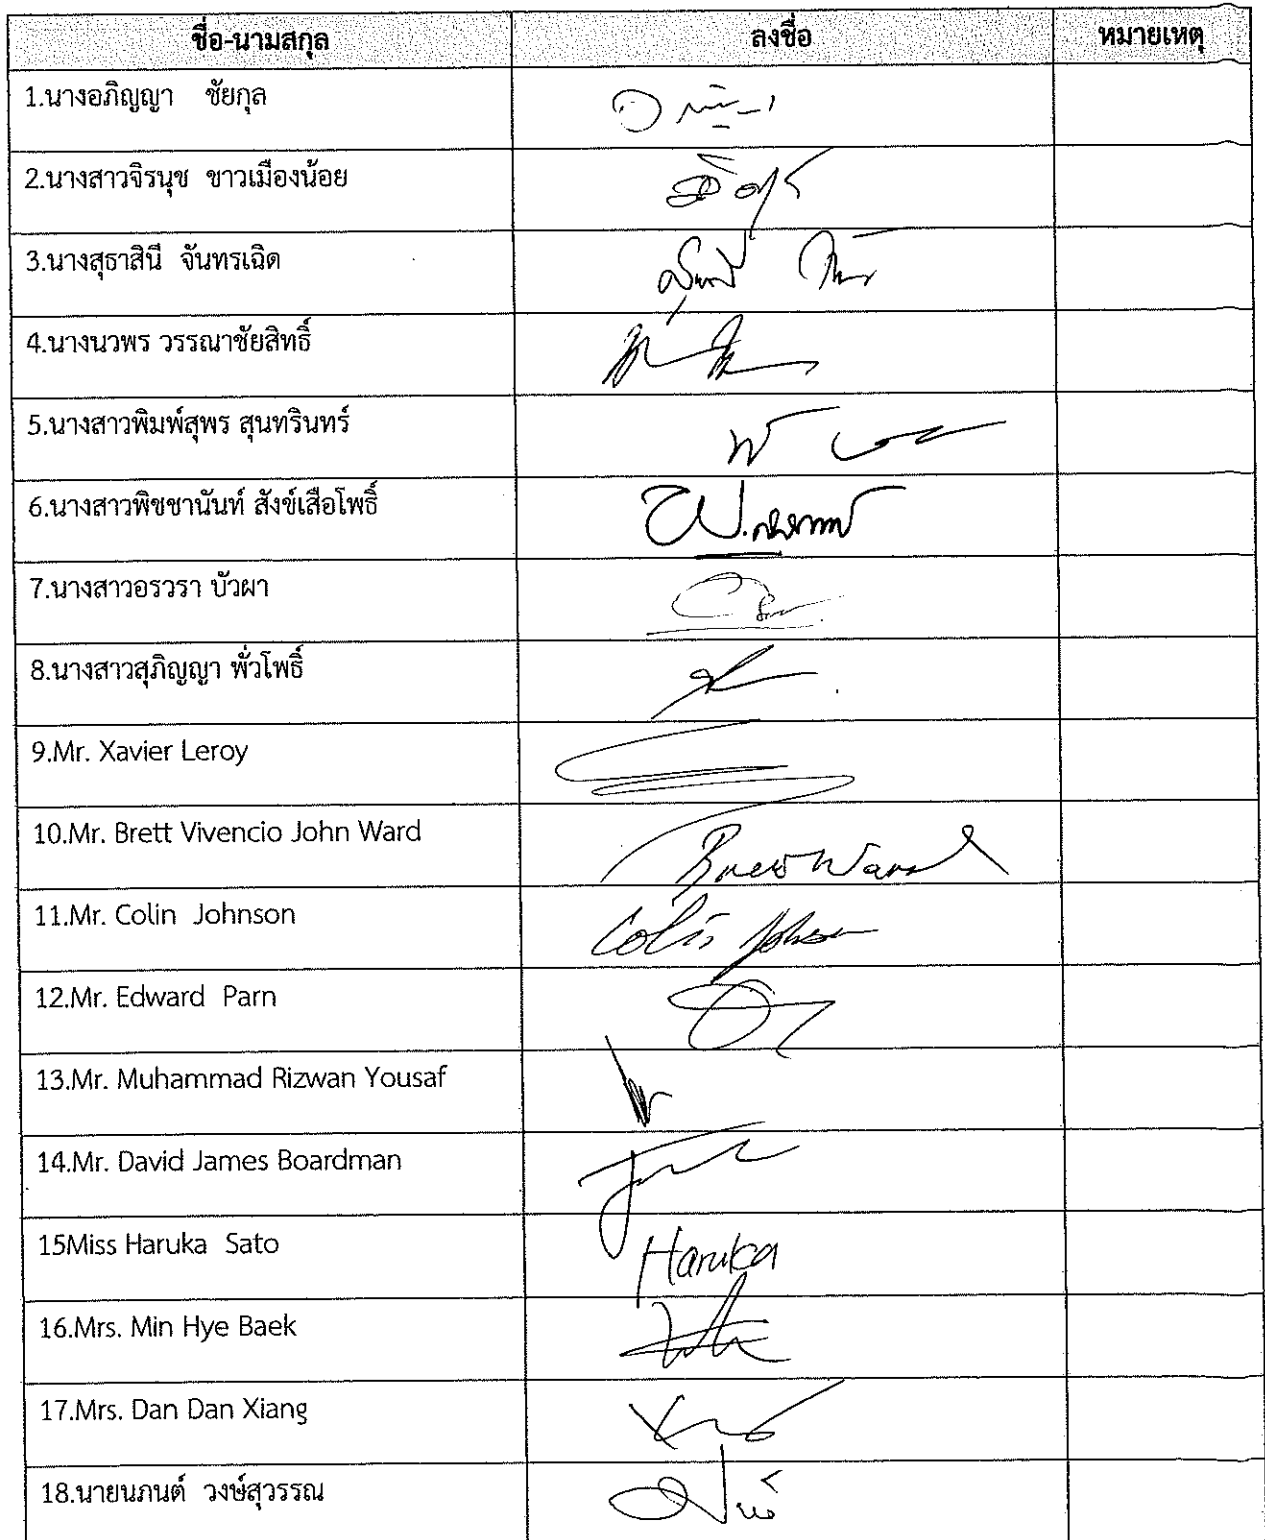 ชื่อ-นามสกุล ลงชื่อ หมายเหตุ
1.นางอภิญญา ชัยกุล
2.นางสาวจิรนุช ขาวเมืองน้อย
3.นางสุธาสินี จันทรเฉิด
4.นางนวพร วรรณาชัยสิทธิ์
5.นางสาวพิมพ์สุพร สุนทรินทร์
6.นางสาวพิชชานันท์ สังข์เสือโพธิ์
7.นางสาวอรวรา บัวผา
8.นางสาวสุภิญญา พั่วโพธิ์
9.Mr. Xavier Leroy
10.Mr. Brett Vivencio John Ward
11.Mr. Colin Johnson Colin Johnson
12.Mr. Edward Parn
13.Mr. Muhammad Rizwan Yousaf
14.Mr. David James Boardman
15Miss Haruka Sato Haruka
16.Mrs. Min Hye Baek
17.Mrs. Dan Dan Xiang
18.นายนภนต์ วงษ์สุวรรณ